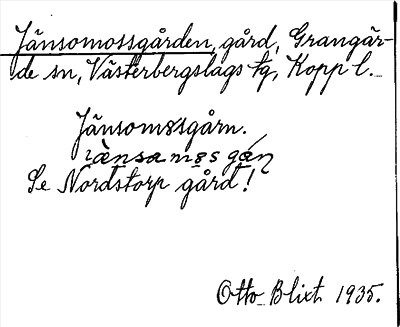 Jänsomossgården, gård, Grangär-
de sn, Västerbergslags tg, Kopp l.
Jänsomossgårn.
Se Nordstorp gård!
Otto Blixt 1935.